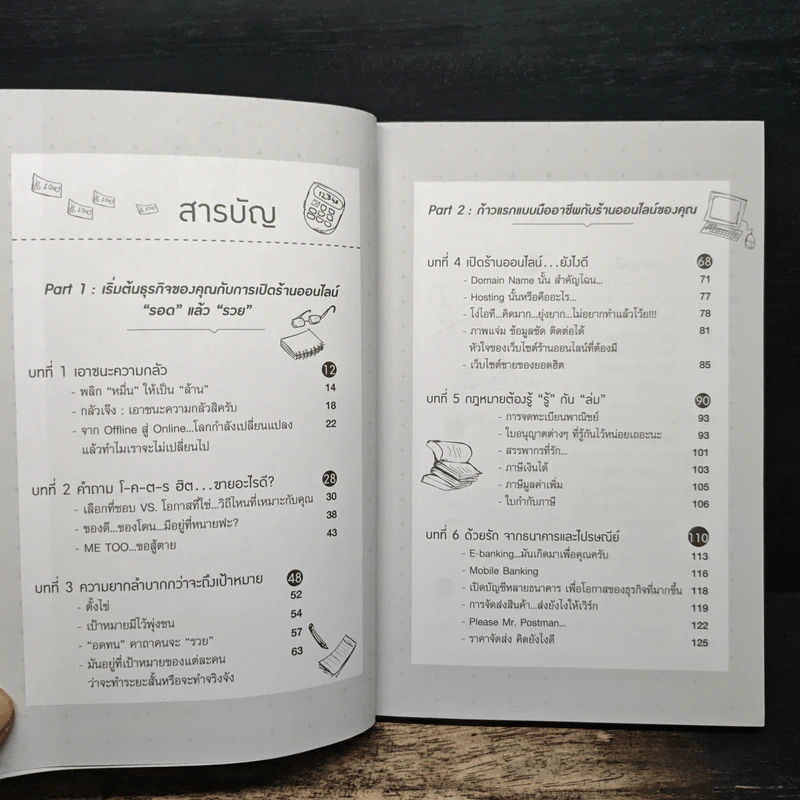 สารบัญ
Part 1 : เริ่มต้นธุรกิจของคุณกับการเปิดร้านออนไลน์
“รอด” แล้ว “รวย”
บทที่ 1 เอาชนะความกลัว 12
- พลิก “หมื่น” ให้เป็น “ล้าน” 14
- กลัวเจ๊ง : เอาชนะความกลัวสิครับ 18
- จาก Offline สู่ Online...โลกกำลังเปลี่ยนแปลง 22
แล้วทำไมเราจะไม่เปลี่ยนไป
บทที่ 2 คำถาม โ-ค-ต-ร ฮิต...ขายอะไรดี? 28
- เลือกที่ชอบ VS. โอกาสที่ใช่...วิถีไหนที่เหมาะกับคุณ 30
- ของดี...ของโดน...มีอยู่ที่หนายฟะ? 38
- ME TOO...ขอสู้ตาย 43
บทที่ 3 ความยากลำบากกว่าจะถึงเป้าหมาย 48
- ตั้งไข่ 52
- เป้าหมายมีไว้พุ่งชน 54
- “อดทน” คาถาคนจะ “รวย” 57
- มันอยู่ที่เป้าหมายของแต่ละคน 63
ว่าจะทำระยะสั้นหรือจะทำจริงจัง
Part 2 : ก้าวแรกแบบมืออาชีพกับร้านออนไลน์ของคุณ
บทที่ 4 เปิดร้านออนไลน์...ยังไงดี 68
- Domain Name นั้น สำคัญไฉน... 71
- Hosting นั้นหรือคืออะไร... 77
- โง่ไอที...คิดมาก...ยุ่งยาก...ไม่อยากทำแล้วโว้ย!!! 78
- ภาพแจ่ม ข้อมูลชัด ติดต่อได้ 81
หัวใจของเว็บไซต์ร้านออนไลน์ที่ต้องมี
- เว็บไซต์ขายของยอดฮิต 85
บทที่ 5 กฎหมายต้องรู้ “รู้” กัน “ล่ม” 90
- การจดทะเบียนพาณิชย์ 93
- ใบอนุญาตต่างๆ ที่รู้กันไว้หน่อยเถอะนะ 93
- สรรพากรที่รัก... 101
- ภาษีเงินได้ 103
- ภาษีมูลค่าเพิ่ม 105
- ใบกำกับภาษี 106
บทที่ 6 ด้วยรัก จากธนาคารและไปรษณีย์ 110
- E-banking...มันเกิดมาเพื่อคุณครับ 113
- Mobile Banking 116
- เปิดบัญชีหลายธนาคาร เพื่อโอกาสของธุรกิจที่มากขึ้น 118
- การจัดส่งสินค้า...ส่งยังไงให้เวิร์ก 119
- Please Mr. Postman... 122
- ราคาจัดส่ง คิดยังไงดี 125